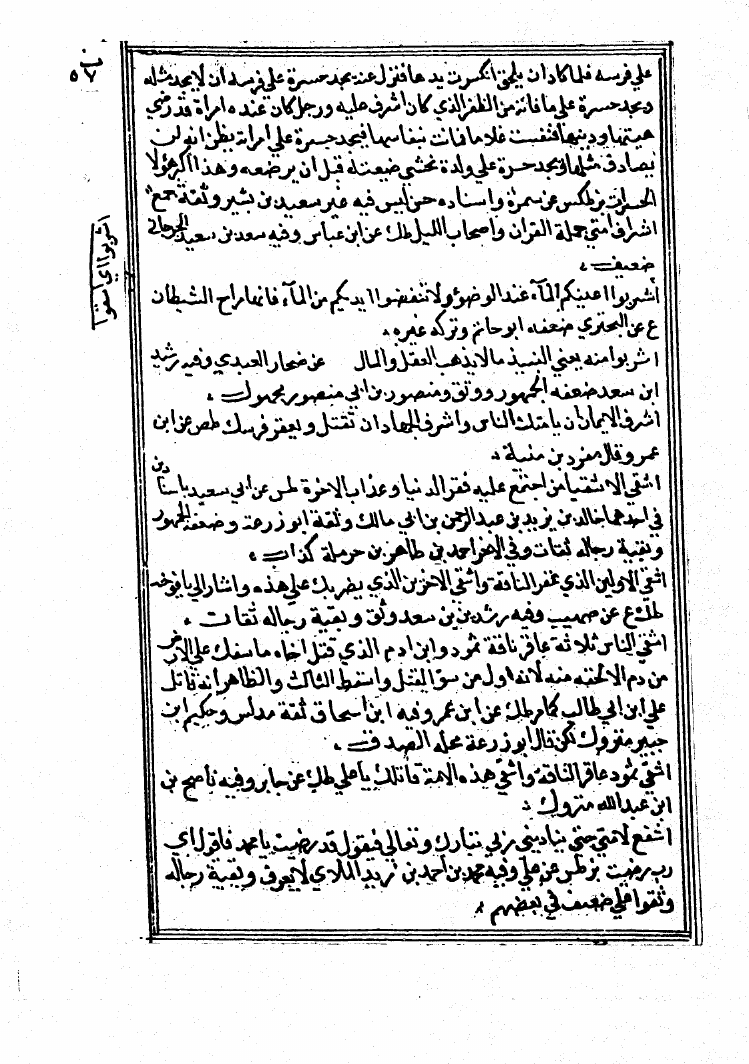 ب
٥٧
علي فرسه فلما كاد ان يلحق انكسرت يدها فنزل عند يجد حسرة علي فرسه ان لا يجد مثله
ويجد حسرة علي ما فاته من الظفر الذي كان اشرف عليه ورجل كان عنده امراة قد رضي
هيئتها ودينها فنفست غلاما فماتت بنفاسها فيجد حسرة علي امراته يظن انه لن
يصادف مثلها ويجد حسرة علي ولده يخشي ضيعته قبل ان يرضعه وهذا اكبر هؤلا
الحسرات بز طكس عن سمرة واسناده حسن ليس فيه غير سعيد بن بشير وثقة جمع
اشراف امتي حملة القران واصحاب الليل طك عن ابن عباس وفيه سعد بن سعيد الجرجاني
ضعيف .
أشربوا اعينكم المآء عند الوضؤ ولا تنفضوا ايديكم من المآء فانها مراوح الشيطان
ع عن البحتري ضعفه ابو حاتم وتركه غيره .
اشربوا منه يعني النبيذ ما لا يذهب العقل والمال عن صحار العبدي وفيه رشيد
ابن سعد ضعفه الجمهور ووثق ومنصور بن ابي منصور مجهول .
اشرف الايمان ان يامنك الناس واشرف الجهاد ان تقتل ويعقر فرسك طص عن ابن
عمر وقال منفرد بن منبه .
اشقي الاشقيا من اجتمع عليه فقر الدنيا وعذاب الاخرة طس عن ابي سعيد باسنادين
في احدهما خالد بن يزيد بن عبد الرحمن بن ابي مالك وثقه ابو زرعة وضعفه الجمهور
وبقية رجاله ثقات وفي الاخر احمد بن طاهر بن حرملة كذاب .
اشقي الاولين الذي عقر الناقة واشقي الاخرين الذي يضربك علي هذه واشار الي يافوخه
طك ع عن صهيب وفيه رشدين بن سعد وثق وبقية رجاله ثقات .
اشقي الناس ثلاثة عاقر ناقة ثمود وابن ادم الذي قتل اخاه ما سفك علي الارض
من دم الا لحقه منه لانه اول من سن القتل واسقط الثالث والظاهر انه قاتل
علي ابن ابي طالب كما رطك عن ابن عمر وفيه ابن اسحاق ثقة مدلس وحكيم ابن
جبير متروك لكن قال ابو زرعة محله الصدق .
اشقي ثمود عاقر الناقة واشقي هذه الامة قاتلك يا علي طك عن جابر وفيه ناصح بن
ابن عبد الله متروك .
اشفع لامتي حتي يناديني ربي تبارك وتعالي فيقول قد رضيت يا محمد فاقول اي
رب رضيت بز طس عن علي وفيه محمد بن احمد بن زيد المداري لا يعرف وبقية رجاله
وثقوا علي ضعيف في بعضهم .
اشربوا اي اسقوا